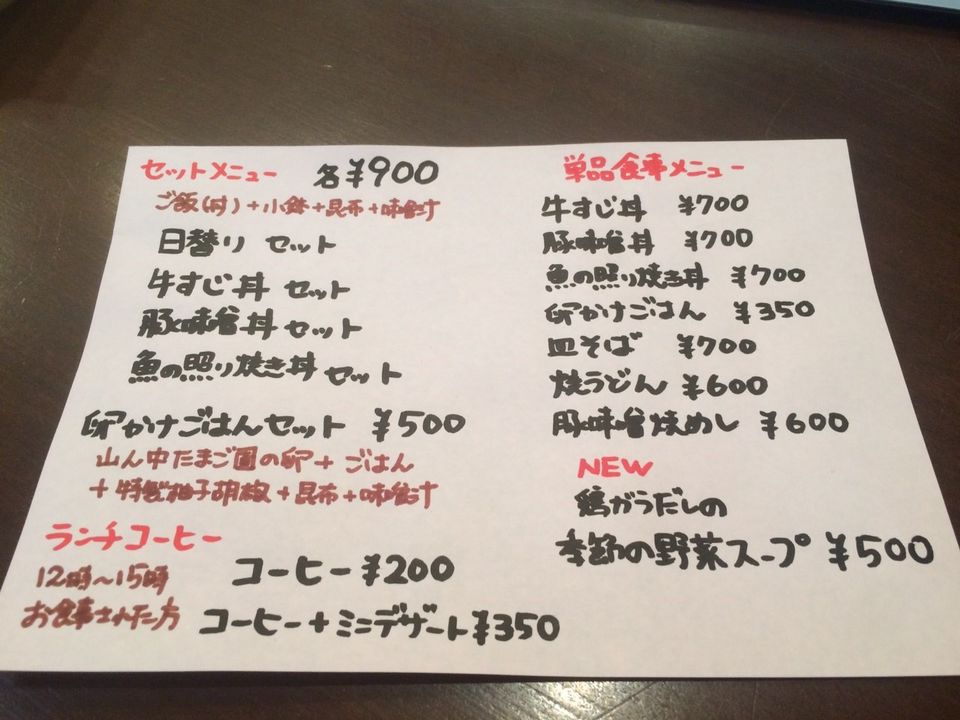 セットメニュー 各¥900
ご飯(丼)+小鉢+昆布+味噌汁
日替り セット
牛すじ丼 セット
豚味噌丼 セット
魚の照り焼き丼 セット
卵かけごはんセット ¥500
山ん中たまご園の卵+ごはん
+特製柚子胡椒+昆布+味噌汁
ランチコーヒー
12時〜15時
お食事された方
コーヒー¥200
コーヒー+ミニデザート¥350
単品食事メニュー
牛すじ丼 ¥700
豚味噌丼 ¥700
魚の照り焼き丼 ¥700
卵かけごはん ¥350
皿そば ¥700
焼うどん ¥600
豚味噌焼めし ¥600
NEW
鶏がらだしの
季節の野菜スープ ¥500